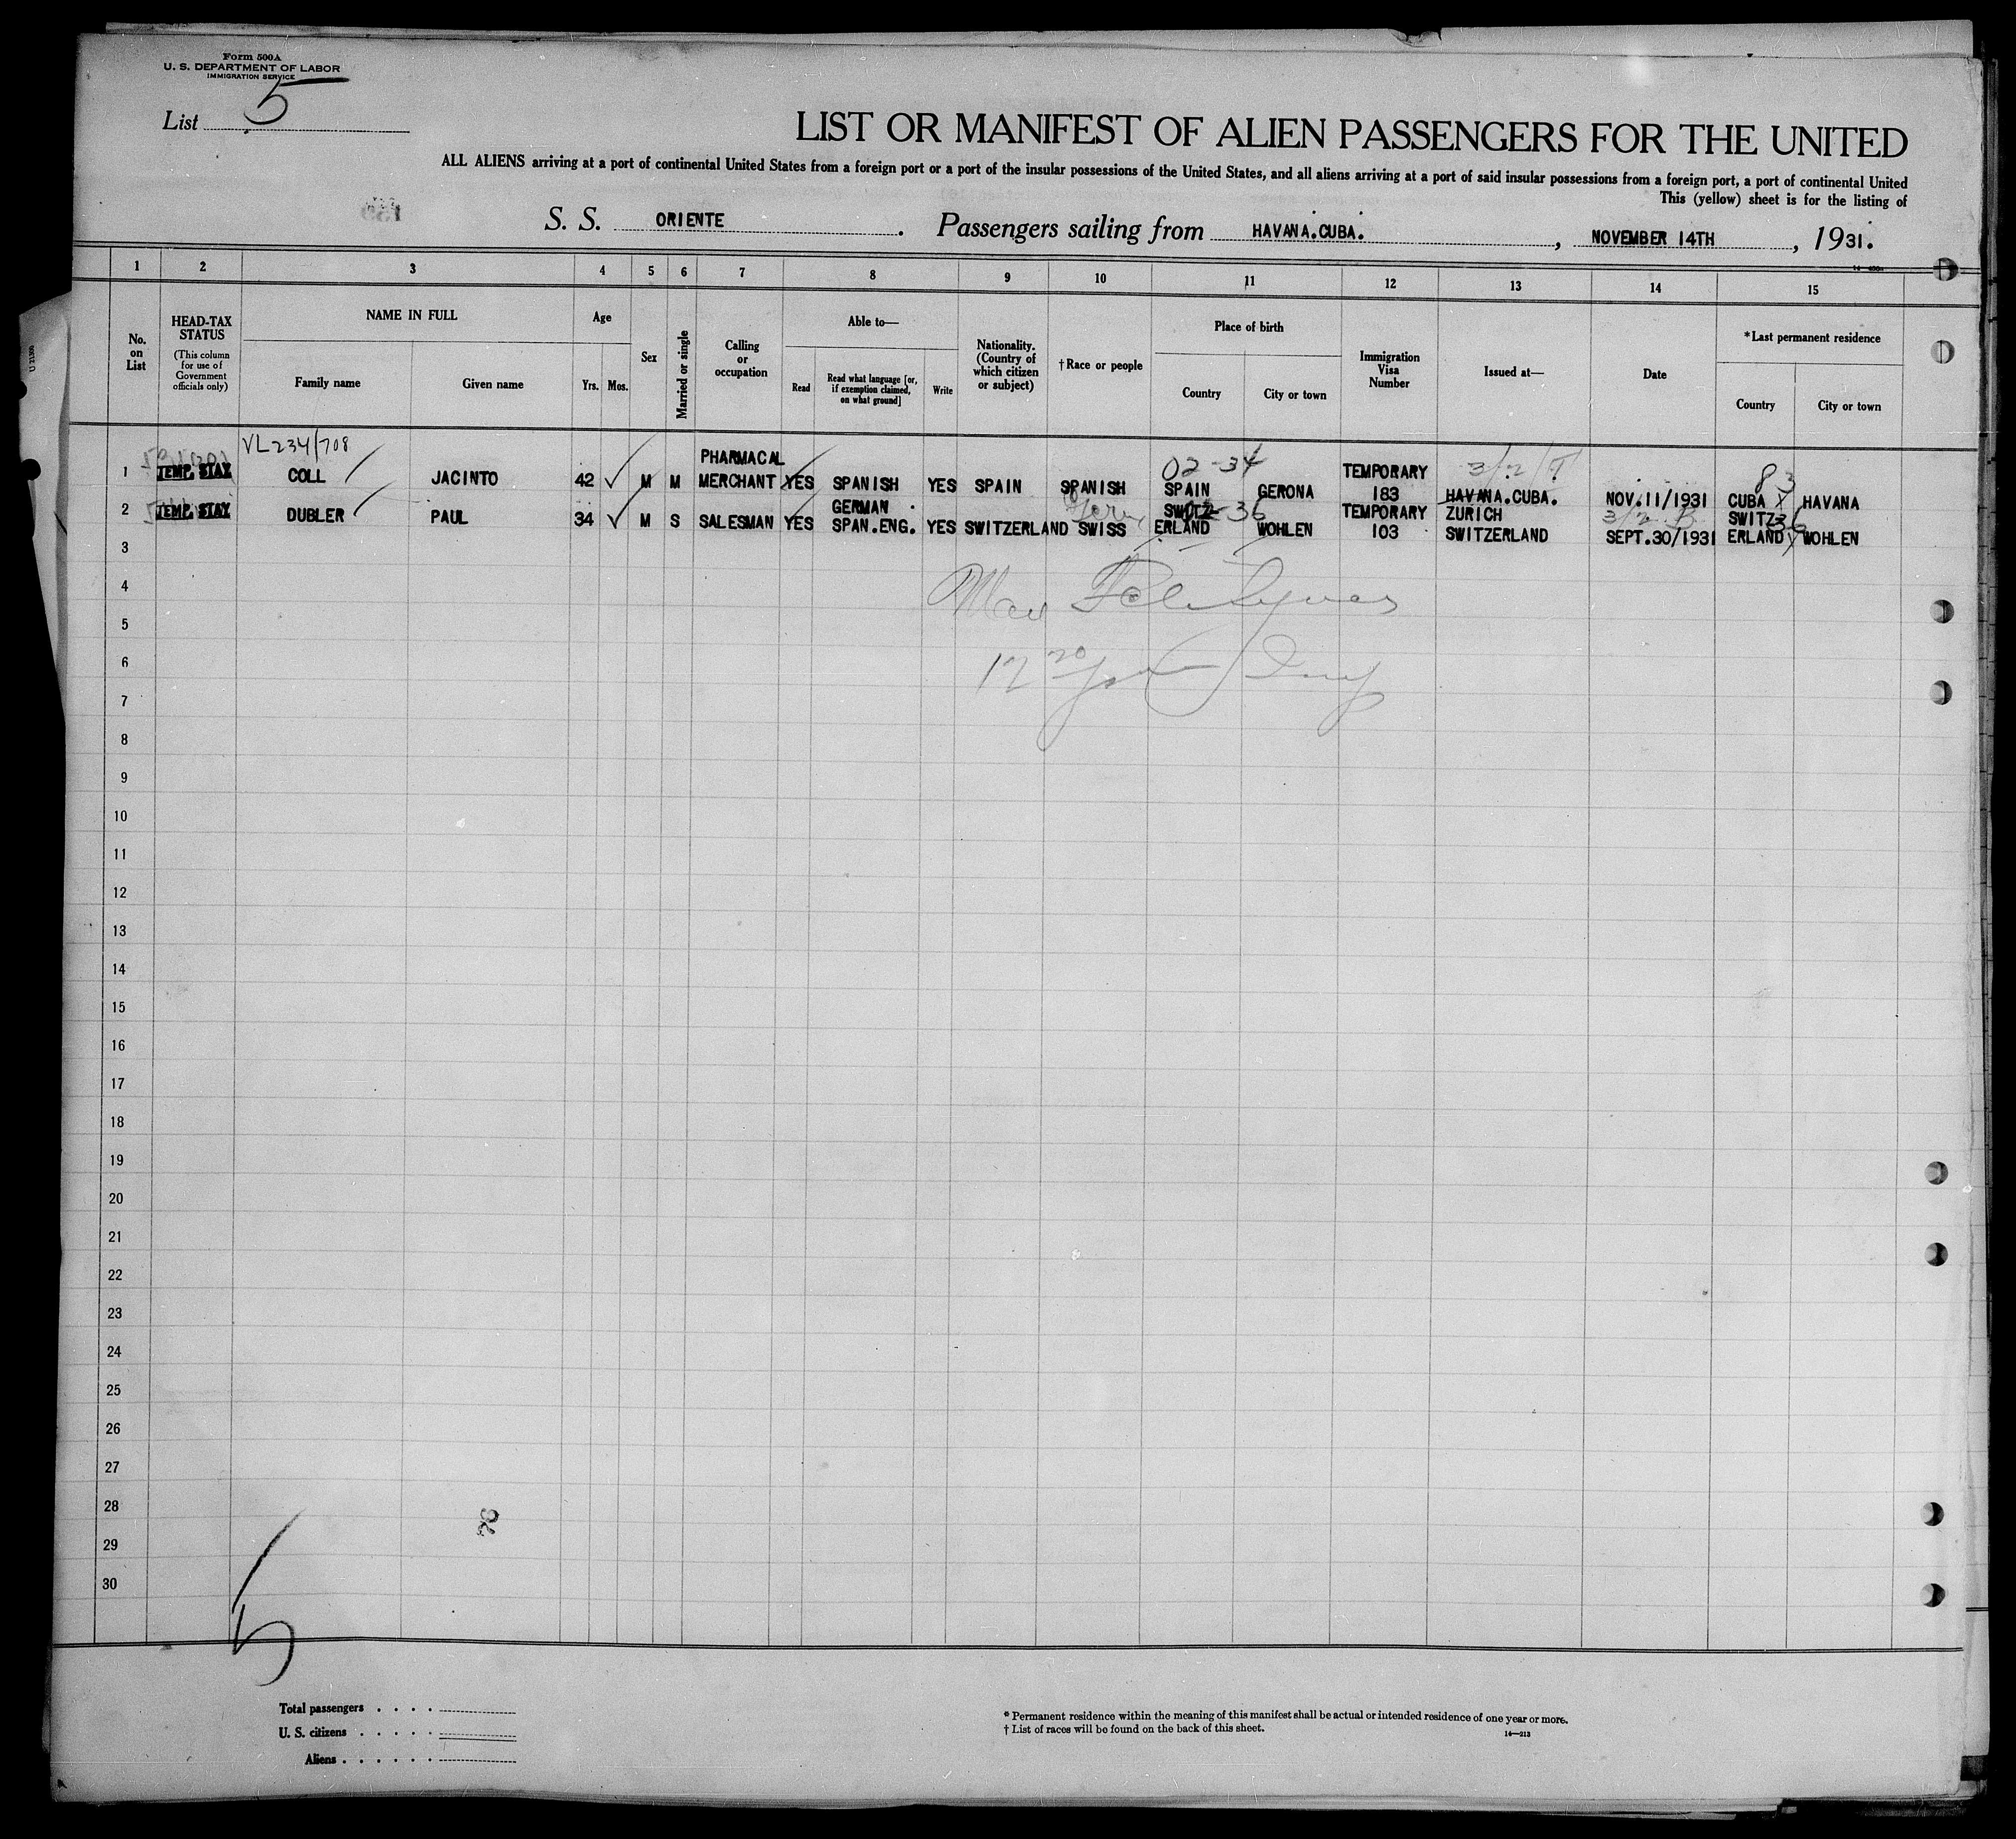 Form 500A
U. S. DEPARTMENT OF LABOR
IMMIGRATION SERVICE
List 5
LIST OR MANIFEST OF ALIEN PASSENGERS FOR THE UNITED
ALL ALIENS arriving at a port of continental United States from a foreign port or a port of the insular possessions of the United States, and all aliens arriving at a port of said insular possessions from a foreign port, a port of continental United
This (yellow) sheet is for the listing of
S. S. ORIENTE. Passengers sailing from HAVANA.CUBA. , NOVEMBER 14TH , 1931.
1 2 3 4 5 6 7 8 9 10 11 12 13 14 15
No. on List
HEAD-TAX STATUS
(This column for use of Government officials only)
NAME IN FULL
Family name
Given name
Age
Yrs. Mos.
Sex
Married or single
Calling or occupation
Able to—
Read
Read what language [or, if exemption claimed, on what ground]
Write
Nationality. (Country of which citizen or subject)
†Race or people
Place of birth
Country
City or town
Immigration Visa Number
Issued at—
Date
*Last permanent residence
Country
City or town
VL234/708
1 TEMP. STAY COLL JACINTO 42 M M PHARMACAL MERCHANT YES SPANISH YES SPAIN SPANISH 02-34 SPAIN GERONA TEMPORARY 183 HAVANA.CUBA. NOV.11/1931 CUBA HAVANA
2 TEMP. STAY DUBLER PAUL 34 M S SALESMAN YES GERMAN SPAN.ENG. YES SWITZERLAND SWISS SWITZ-ERLAND WOHLEN TEMPORARY 103 ZURICH SWITZERLAND SEPT.30/1931 SWITZ-ERLAND WOHLEN
3
4
5
6
7
8
9
10
11
12
13
14
15
16
17
18
19
20
21
22
23
24
25
26
27
28
29
30
5
Total passengers . . . .
U. S. citizens . . . . .
Aliens . . . . . .
* Permanent residence within the meaning of this manifest shall be actual or intended residence of one year or more.
† List of races will be found on the back of this sheet.
14—213